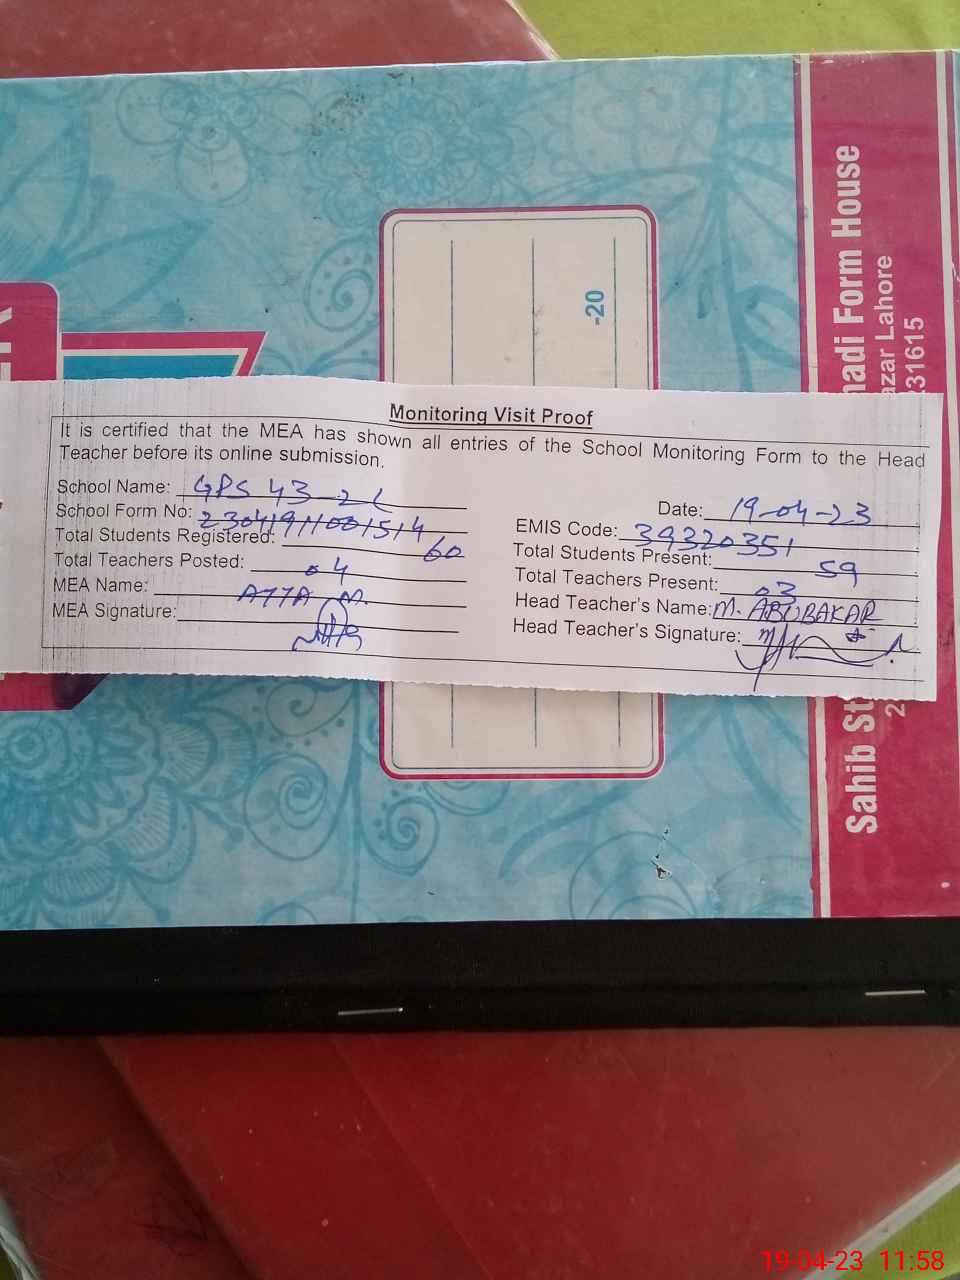 Monitoring Visit Proof
It is certified that the MEA has shown all entries of the School Monitoring Form to the Head
Teacher before its online submission.
School Name: GPS 43-2L
Date: 19-04-23
School Form No: 23041911001514
EMIS Code: 39320351
Total Students Registered: 60
Total Students Present: 59
Total Teachers Posted: 04
Total Teachers Present: 03
MEA Name: ATTA M.
Head Teacher's Name: M. ABUBAKAR
MEA Signature:
Head Teacher's Signature:
-20
nadi Form House
azar Lahore
31615
Sahib St
19-04-23 11:58